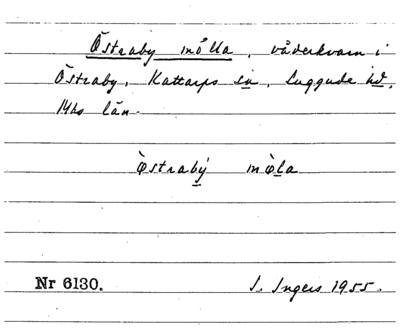 Östraby mölla, väderkvarn i
Östraby, Kattarps sn, Luggude hd,
Mhs län.
östrabý möla
Nr 6130. I. Ingers 1955.